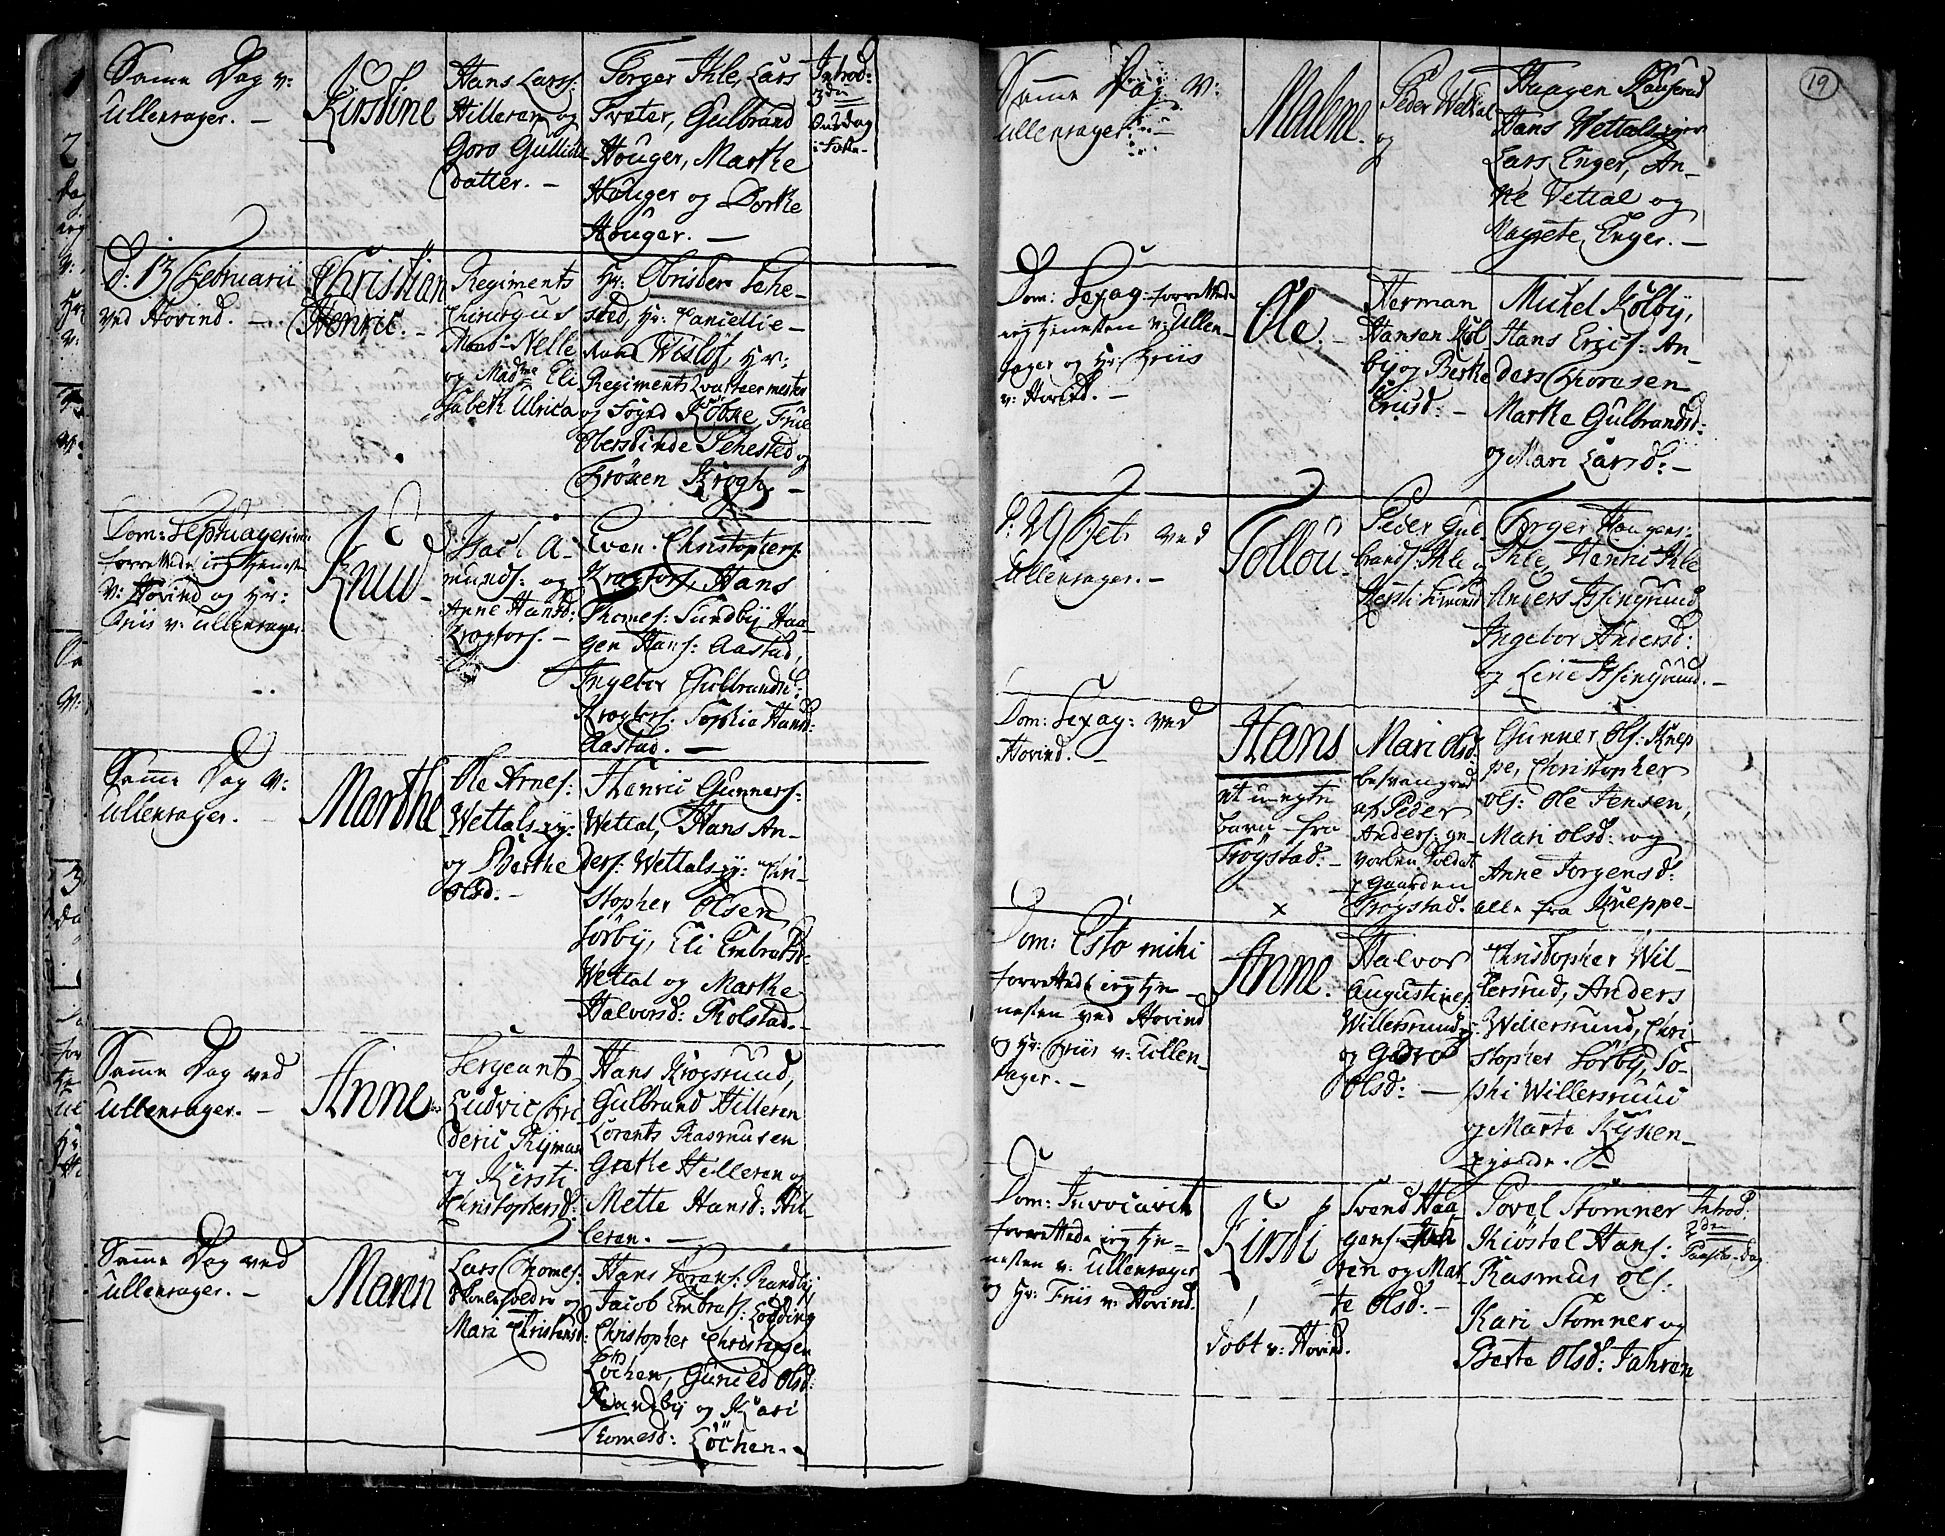 Samme Dag v:
Ullensager. –
Kirstine
Hans Larss:
Hilleren og
Goro Gulliks-
datter. –
Torger Ihle, Lars
Svater, Gulbrand
Houger, Marthe
Houger og Dorthe
Houger. –
Introd:
3de
Onsdag
i Faste
D: 13 Februarii
ved Hovind. –
Christian
Henric. –
Regiments
Chirurgus
Mons: Nelle
og Madme Eli
sabeth Ulrica
Hr: Obrister Sehe-
sted, Hr:
Wisløf, Hr:
Regiments Qvarteermester
og Fogd Köbke, Frue
Oberstinde Sehested og
Frøken Krogh. –
Dom: Septuagesima
forrettede ieg tienesten
v: Hovind og Hr:
Friis v: Ullensager.
Knud –
Isach A-
munds: og
Anne Hansd:
Krogfors. –
Even Christophers:
Krogfors, Hans
Thomes: Sundby Haa-
gen Hans: Aastad,
Ingebor Gulbrandsd:
Krogfors. Sophia Hansd:
Aastad. –
Samme Dag v:
Ullensager. –
Marthe
Ole Arnes:
Wettals ey:
og Berthe
Olsd. –
Henric Gunners:
Wettal, Hans An-
ders: Wettals ey: Chri-
stopher Olsen
Sørby, Eli Embretsd:
Wettal og Marthe
Halvorsd: Kolstad. –
Samme Dag ved
Ullensager. –
Anne
Sergeant
Ludvic Fri
deric Ryman
og Kersti
Christophersd:
Hans Krogsruud,
Gulbrand Hilleren
Lorents Rasmusen
Grethe Hilleren og
Mette Hansd: Hil-
leren. –
Samme Dag ved
Ullensager. –
Maren
Lars Thomes:
Skoleholder og
Mari Christensd:
Hans Sørens: Randby
Jacob Embrets: Lodding
Christopher Christensen
Løchen, Gunild Olsd:
Randby og Kari
Thomesd: Løchen. –
19
Samme Dag v:
Ullensager: –
Malene.
Peder Wettal
og
Haagen Raaserud
Hans Wettalseyer
Lars Enger, An-
ne Vettal og
Magrete Enger. –
Dom: Sexag: forrettede
ieg tienesten v: Ullen-
sager og Hr: Friis
v: Hovind. –
Ole. –
Herman
Hansen Kol-
by og Berthe
Crisd: –
Mikel Kolby,
Hans Erics: An-
ders Thoresen
Marthe Gulbrandsd:
og Mari Larsd: –
D: 29 Oct. ved
Ullensager. –
Tollou –
Peder Gul
brands: Ihle og
Kersti
Torger Haagens:
Ihle, Henric Ihle
Anders Asingruud
Ingebor Andersd:
og Lene Asingruud. –
Dom: Sexag: ved
Hovind. –
Hans
et u-ægte
Barn fra
Frogstad: –
x
Mari Olsd:
besvangred
af Peder
Anders: ge-
vorben Soldat
p Gaarden
Frogstad.
Gunner Ols: Knep
pe, Christopher
Ols: Ole Jensen,
Mari Olsd: og
Anne Jorgensd:
alle fra Kneppe –
Dom: Esto mihi
forrettede ieg tie-
nesten ved Hovind
og Hr: Friis v: Ullen-
sager. –
Anne.
Halvor
Augustines:
Willersruud
og Goro
Olsd: –
Christopher Wil-
lersrud, Anders
Willersruud, Chri
stopher Sørby, So-
phi Willersruud
og Marte Kysen-
Dom: Invocavit
forrettede ieg tie-
nesten v: Ullensager
og Hr: Friis v: Hovind.
Kirsti
døbt v: Hovind.
Svend Haa-
gens: Jah-
ren og Mar-
te Olsd: –
Povel Stomner
Kiøstel Hans:
Rasmus Ols:
Kari Stomner og
Berte Olsd: Jahren
Introd.
2den
Paaske-dag